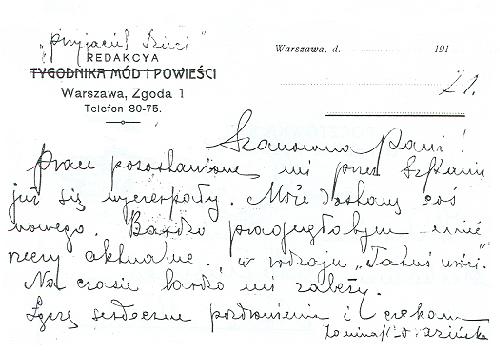 "Przyjaciel Dzieci"
REDAKCYA
TYGODNIKA MÓD I POWIEŚCI
Warszawa, Zgoda 1
Telefon 80-75.
Warszawa, d. 191
Szanowna Pani!
Prace pozostawione mi przez
już się wyczerpały. Może dostanę coś
nowego. Bardzo pragnęłabym mieć
rzeczy aktualne. w rodzaju „
Na czasie bardzo mi zależy.
Łączę serdeczne pozdrowienia i czekam